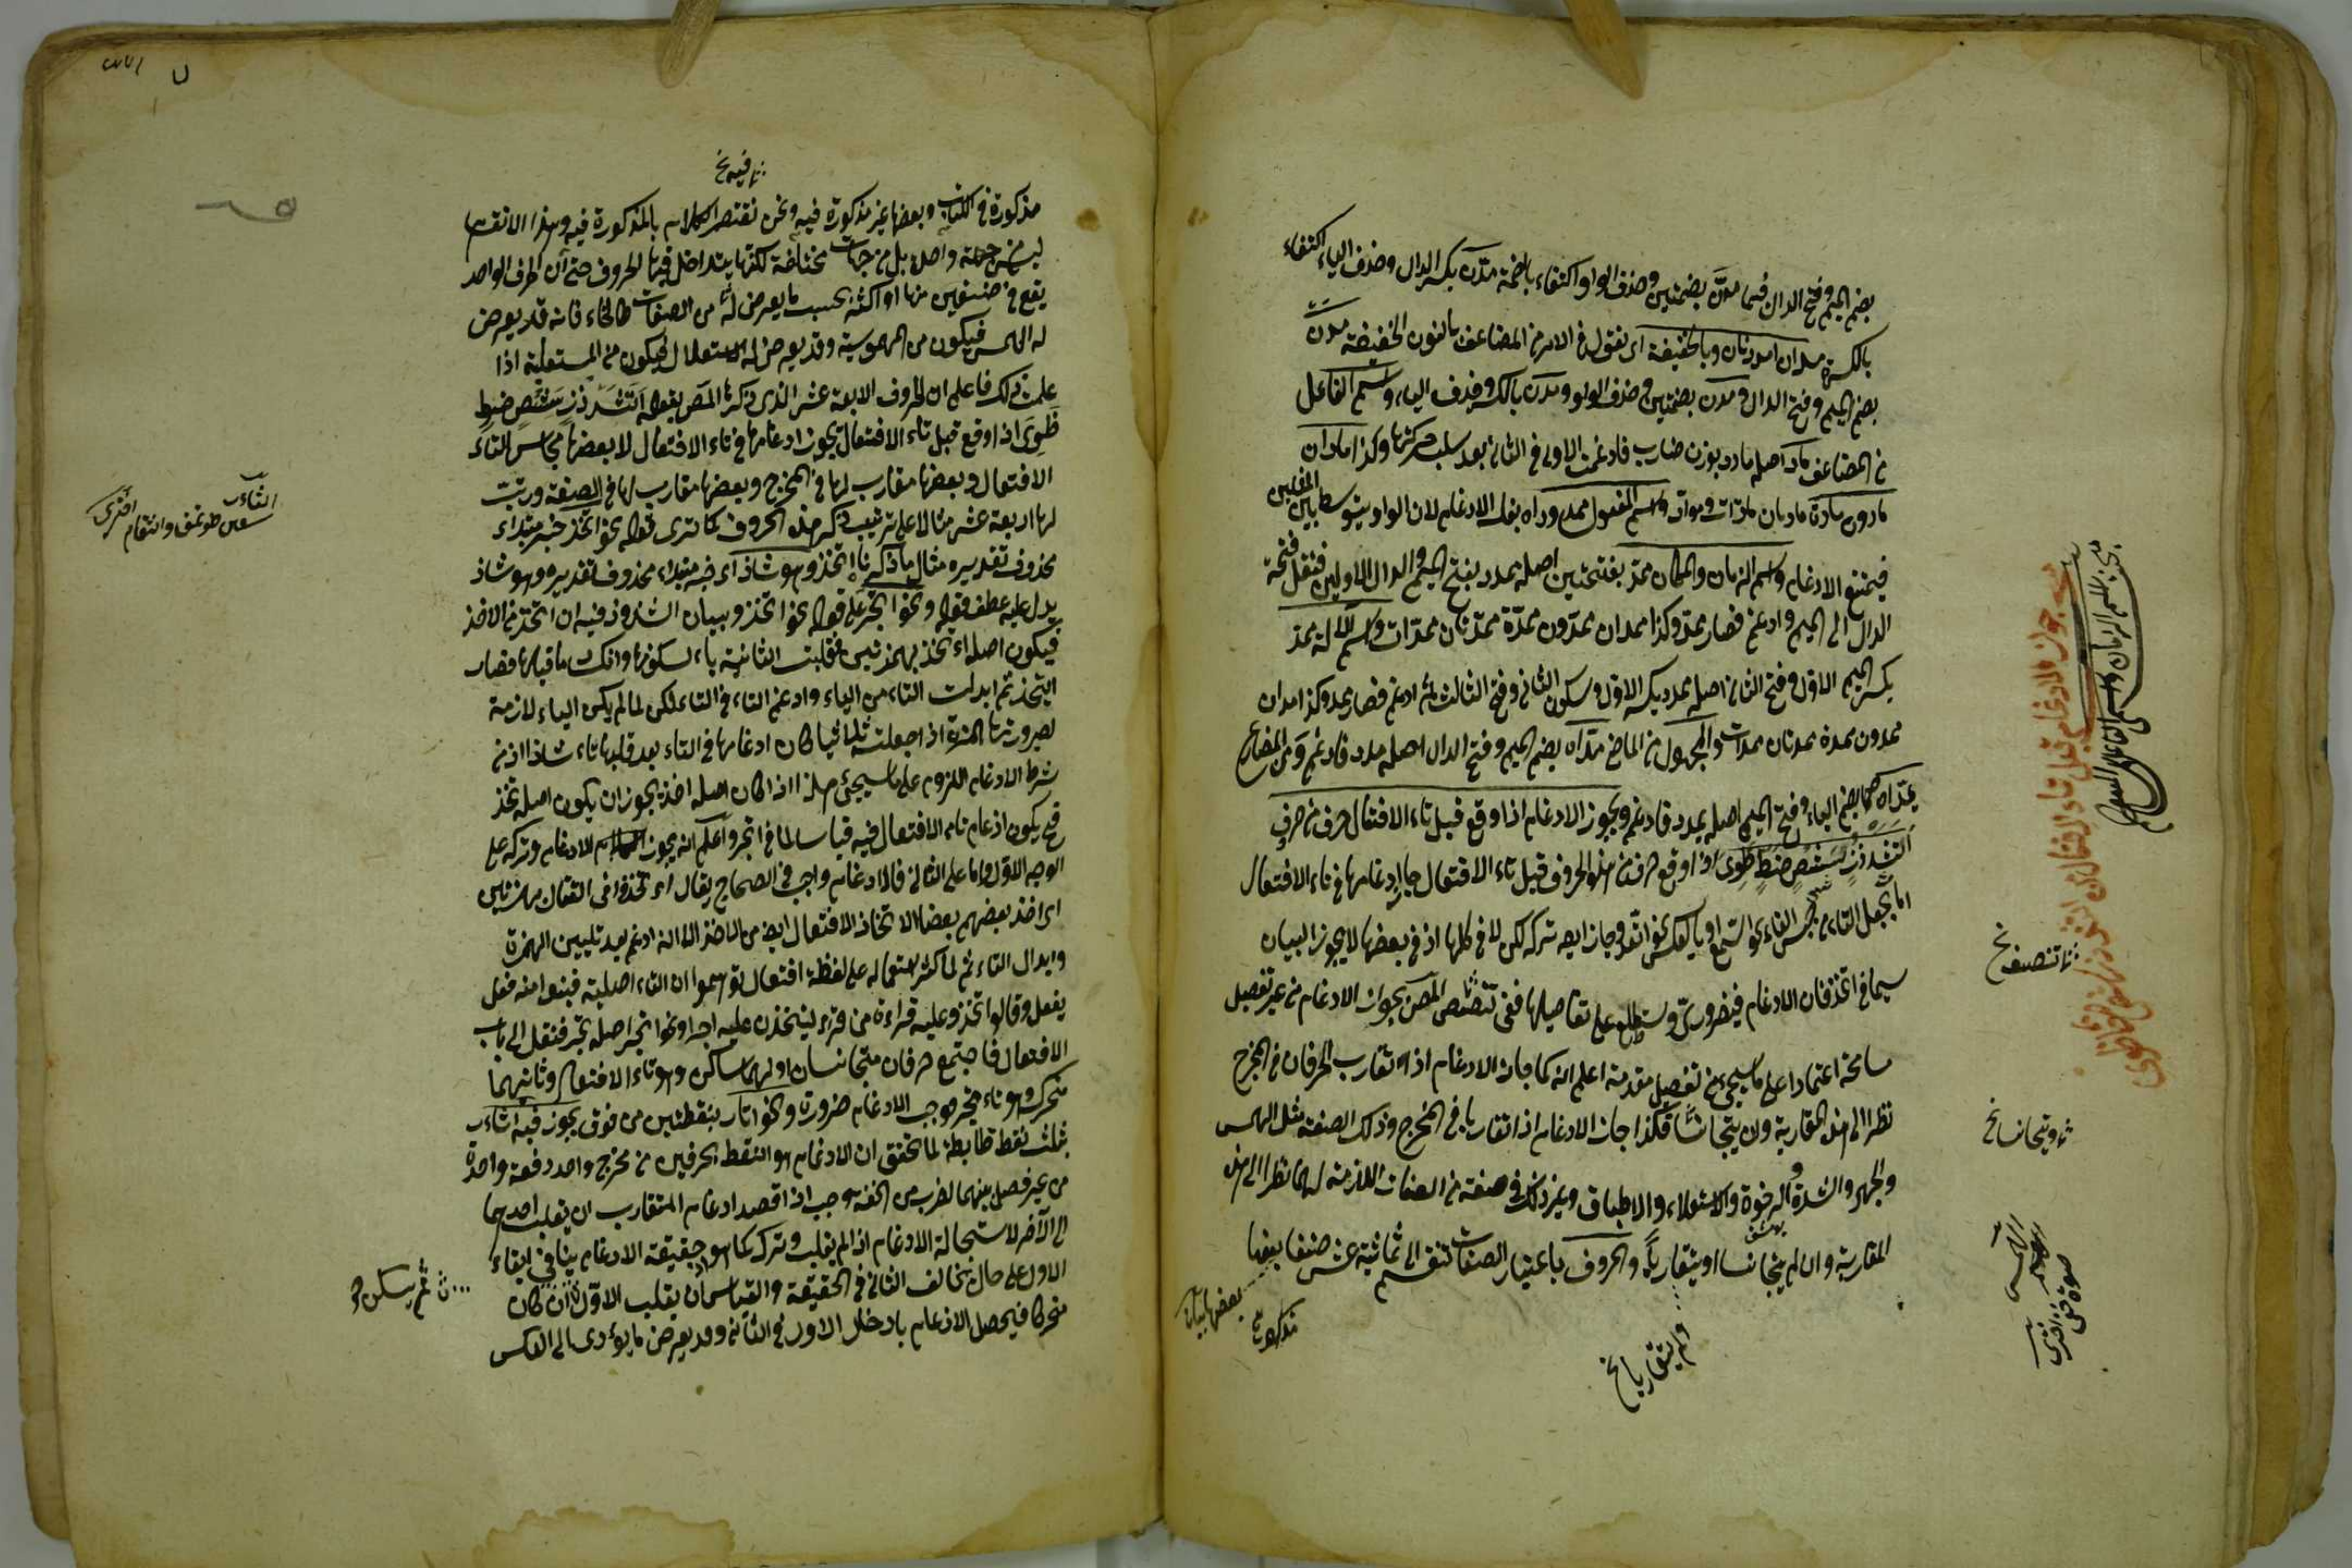 بضم الميم وفتح الدال فيهما مدن بضمتين وحذف الواو اكتفاء بالضمة مدن بكسر الدال وحذف الياء اكتفاء
بالكسرة مدان امددنان وبالخفيفة اى نقول فى الامر من المضاعف بالنون الخفيفة مدن
بضم الميم وفتح الدال ومدن بضمتين وحذف الواو ومدن بالكسر وحذف الياء واسم الفاعل
من المضاعف ماد اصله مادد بوزن ضارب فادغمت الاولى فى الثانى بعد سلب حركتها وكذا مادان
مادون مادة مادتان مادات ومواد واسم المفعول ممدود اه بفك الادغام لان الواو يتوسط بين المثلين
فيمتنع الادغام واسم الزمان والمكان ممد بفتحتين اصله ممدد بفتح الميم والدال الاولى فنقل فتحة
الدال الى الميم وادغم فصار ممد وكذا ممدان ممدون ممدة ممدتان ممدات واسم الآلة ممد
بكسر الميم الاول وفتح الثانى اصله ممدد بكسر الاول وسكون الثانى وفتح الثالث ثم ادغم فصار ممد وكذا ممدان
ممدون ممدة ممدتان ممدات والمجهول من الماضى مد اه بضم الميم وفتح الدال اصله مدد فادغم ومن المضارع
يمد اه بضم الياء وفتح الميم اصله يمدد فادغم ويجوز الادغام اذا وقع قبل تاء الافتعال حرف من حروف
اتثد ذز سشص ضط ظوى اذا وقع حرف من هذه الحروف قبل تاء الافتعال جاز ادغامها فى تاء الافتعال
اما بجعل التاء من جنس الفاء نحو اسمع او بالعكس نحو اتعد وجاز ايضا تركه لكن لا فى كلها اذ فى بعضها لا يجوز البيان
سيما فى اتخذ فان الادغام فيه ضرورى وستطلع على تفاصيلها ففى تنصيص المص بجواز الادغام من غير تفصيل
مسامحة اعتمادا على ما سيجئ من تفصيل مقدمة اعلم انه كما جاز الادغام اذا تقارب الحرفان فى المخرج
نظرا الى هذه المقاربة وان لم يتجانسا فكذا جاز الادغام اذا تقاربا فى المخرج وذلك الصفة مثل الهمس
والجهر والشدة والرخوة والاستعلاء والاطباق وغير ذلك من صفة من الصفات اللازمة لهما نظرا الى هذه
المقاربة وان لم يتجانسا او يتقاربا والحروف باعتبار الصفات تنقسم الى ثمانية عشر صنفا بعضها
ولم يتقاربا نخ
تنصيف نخ
ويتجانسا نخ
مذكورة فى الكتاب وبعضها غير مذكورة فيه ونحن نقتصر الكلام بالمذكورة فيه وهذا الانقسام
ليس من جهة واحدة بل من جهات مختلفة لكنها يتداخل فيها الحروف حتى ان الحرف الواحد
يقع فى صنفين منها او اكثر بحسب ما يعرض له من الصفات كالخاء فانه قد يعرض
له الهمس فيكون من المهموسة وقد يعرض له الاستعلاء فيكون من المستعلية اذا
علمت ذلك فاعلم ان الحروف الاربعة عشر الذى ذكرها المص بقوله اتثد ذز سشص ضط
ظوى اذا وقع قبل تاء الافتعال يجوز ادغامها فى تاء الافتعال لان بعضها مجانس لتاء
الافتعال وبعضها مقارب لها فى المخرج وبعضها مقارب لها فى الصفة ورتبت
لها اربعة عشر مثالا على ترتيب ذكر هذه الحروف كما ترى قوله نحو اتخذ خبر مبتداء
محذوف تقديره مثال ما ذكرنا اتخذ وهو شاذ اى خبر مبتداء محذوف تقديره وهو شاذ
يدل عليه عطف قوله ونحو اتجر على قوله نحو اتخذ وبيان الشذوذ فيه ان اتخذ من الاخذ
فيكون اصله اءتخذ بهمزتين فقلبت الثانية ياء لسكونها وانكسار ما قبلها فصار
ايتخذ ثم ابدلت التاء من الياء وادغم التاء فى التاء لكن لما لم يكن الياء لازمة
لصيرورتها همزة اذا جعلته ثلاثيا كان ادغامها فى التاء بعد قلبها تاء شاذا اذ من
شرط الادغام اللزوم على ما سيجئ هذا اذا كان اصله اخذ يجوز ان يكون اصله تخذ
فح يكون ادغام تاء الافتعال فيه قياسا كما فى اتجر واعلم انه يجوز الادغام وتركه على
الوجه الاول واما على الثانى فالادغام واجب فى الصحاح يقال اءتخذوا فى القتال بهمزتين
اى اخذ بعضهم بعضا الاتخاذ الافتعال ايضا من الاخذ الا انه ادغم بعد تليين الهمزة
وابدال التاء ثم لما كثر استعماله على لفظة افتعال توهموا ان التاء اصلية فبنوا منه فعل
يفعل وقالوا تخذ وعليه قراءة من قرء لتخذت عليه اجرا ونحو اتجر اصله تجر فنقل الى باب
الافتعال فاجتمع حرفان متجانسان اولهما ساكن وهو تاء الافتعال وثانيهما
متحرك وهو تاء تجر فوجب الادغام ضرورة ونحو اتار بنقطتين من فوق يجوز فيه اثاءر
بثلث نقط ضابطة لما تحقق ان الادغام هو التلفظ بحرفين من مخرج واحد دفعة واحدة
من غير فصل بينهما لضرب من الخفة وجب اذا قصد ادغام المتقارب ان يقلب احدهما
الى الآخر لاستحالة الادغام اذا لم يقلب وترك كما هو اذ حقيقة الادغام ينافى ابقاء
الاول على حال يخالف الثانى فى الحقيقة والقياس ان يقلب الاول ان كان
متحركا فيحصل الادغام بادخال الاول فى الثانى وقد يعرض ما يؤدى الى العكس
ثم يسكن